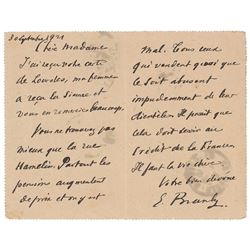 30 Septembre 1921
Chère Madame
J'ai reçu votre carte
de Lourdes, ma femme
a reçu la sienne et
vous en remercie beaucoup.
Vous ne trouverez pas
mieux que la rue
Hamelin. Partout les
pensions augmentent
de prix et on y est
mal. Tous ceux
qui vendent quoi que
ce soit abusent
impudemment de leur
clientèle. Il paraît que
cela doit servir au
crédit de la France.
Il faut la vie chère.
Votre bien dévoué
E. Branly